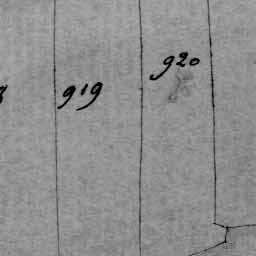 919
920